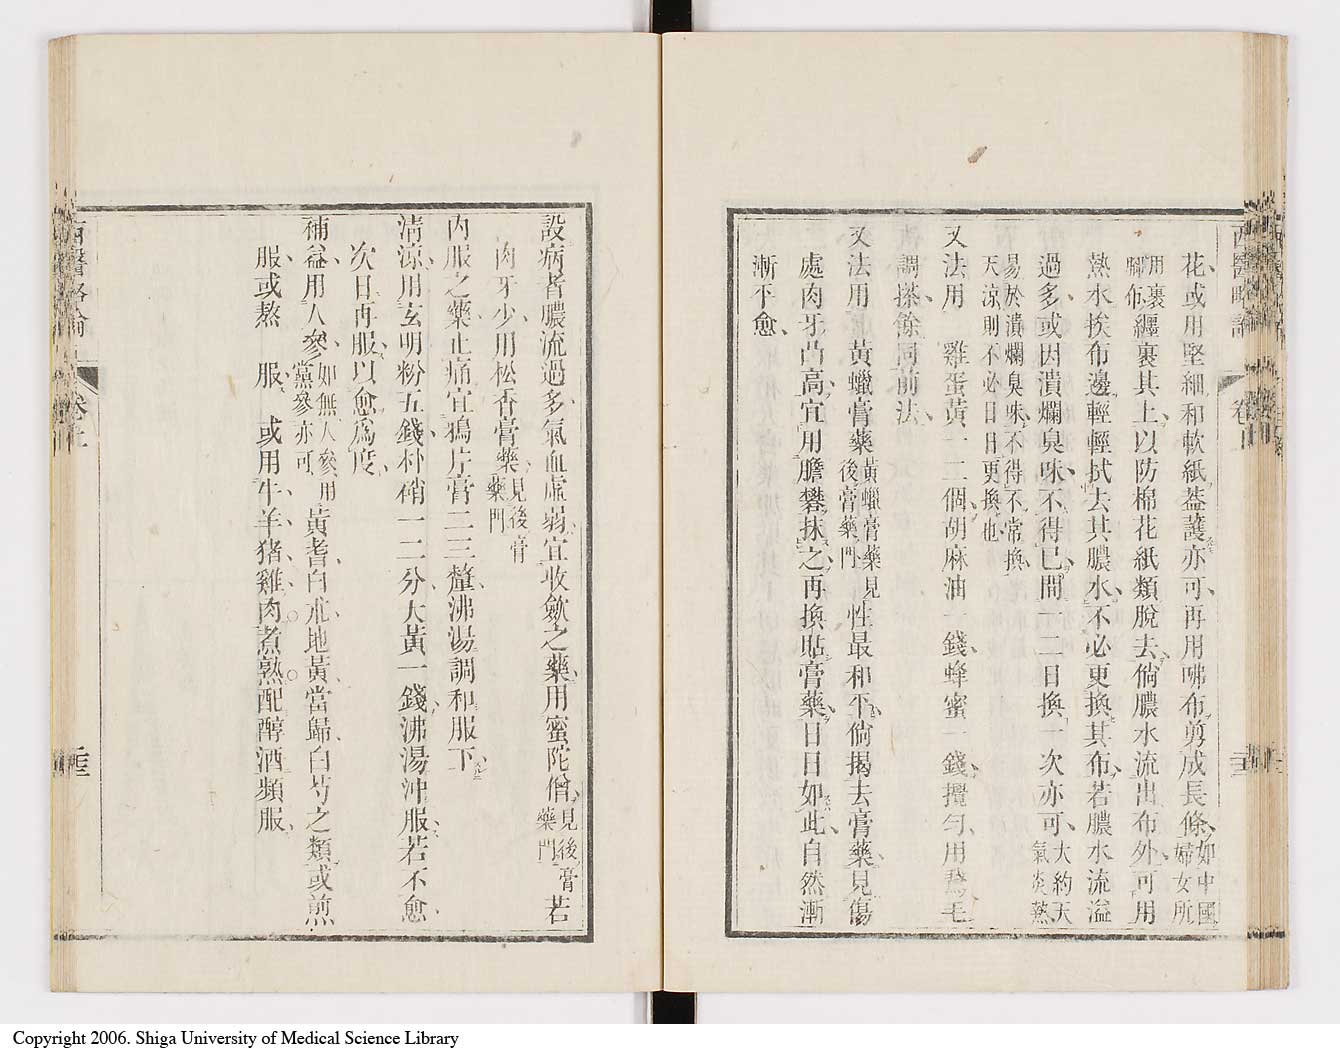 花或用堅細和軟紙葢護亦可再用咈布剪成長條如中國婦女所
用裹腳布纏裹其上以防棉花紙類脫去倘膿水流出布外可用
熱水挨布邊輕輕拭去其膿水不必更換其布若膿水流溢
過多或因潰爛臭味不得已間一二日換一次亦可大約天氣炎熱
易於潰爛臭味不得不常換天涼則不必日日更換也
又法用雞蛋黃一二個胡麻油一錢蜂蜜一錢攪勻用鵞毛
調搽餘同前法
又法用黃蠟膏藥黃蠟膏藥見後膏藥門性最和平倘揭去膏藥見傷
處肉牙凸高宜用膽礬抹之再換貼膏藥日日如此自然漸
漸平愈
西醫略論
設病者膿流過多氣血虛弱宜收斂之藥用蜜陀僧見後膏藥門若
肉牙少用松香膏藥見後膏藥門
內服之藥止痛宜鴉片膏二三釐沸湯調和服下
清涼用玄明粉五錢朴硝一二分大黃一錢沸湯沖服若不愈
次日再服以愈爲度
補益用人參如無人參用黨參亦可黃耆白朮地黃當歸白芍之類或煎
服或熬服或用牛羊猪雞肉煮熟配醇酒頻服
西醫略論
Copyright 2006. Shiga University of Medical Science Library